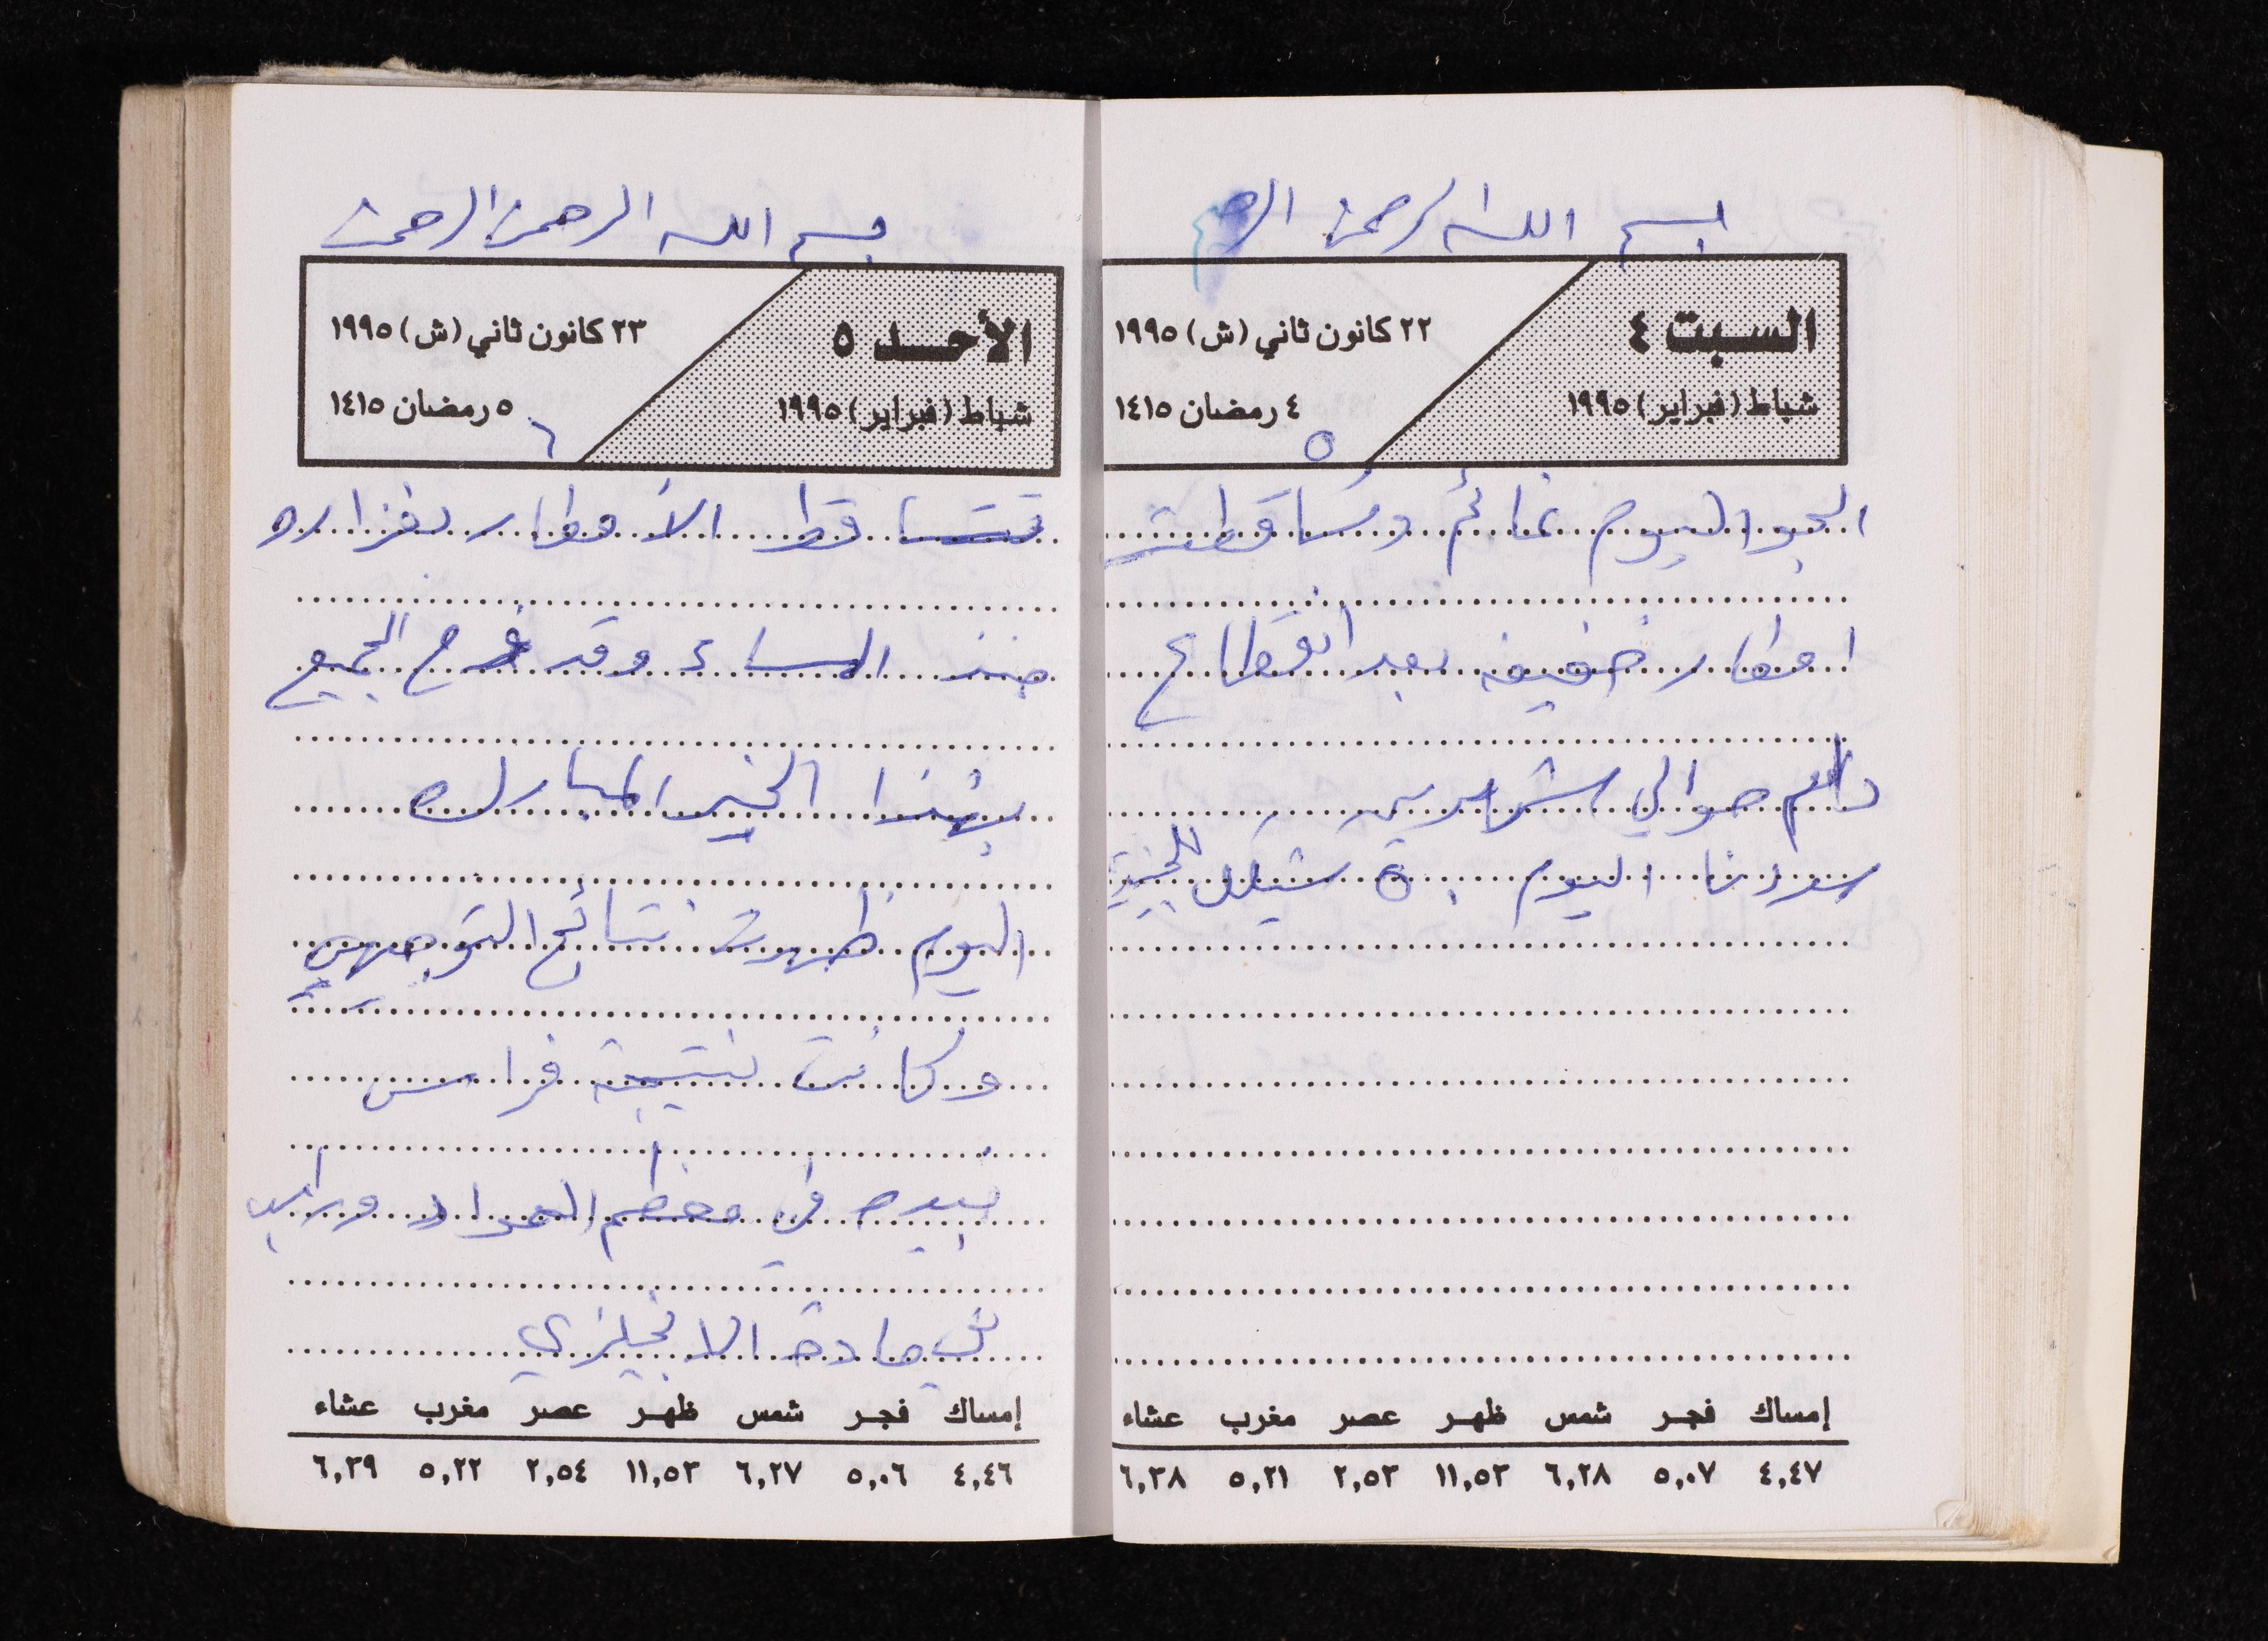 بسم الله الرحمن الرحيم
السبت ٤
شباط (فبراير) ١٩٩٥
٢٢ كانون ثاني (ش) ١٩٩٥
٤ رمضان ١٤١٥
٥
الجو اليوم غائم وتساقطت
امطار خفيفه بعد انقطاع
دام حوالي شهرين
سددنا اليوم ٥٠ شيكل
إمساك فجر شمس ظهر عصر مغرب عشاء
٤,٤٧ ٥,٠٧ ٦,٢٨ ١١,٥٣ ٢,٥٣ ٥,٢١ ٦,٣٨
بسم الله الرحمن الرحمن
الأحد ٥
شباط (فبراير) ١٩٩٥
٢٣ كانون ثاني (ش) ١٩٩٥
٥ رمضان ١٤١٥
٦
تتساقط الأمطار بغزاره
منذ المساء وقد فرح الجميع
بهذا الخير المبارك
اليوم ظهرت نتائج التوجيهي
وكانت نتيجة فراس
جيده في معظم المواد وراسب
في مادة الانجليزي
إمساك فجر شمس ظهر عصر مغرب عشاء
٤,٤٦ ٥,٠٦ ٦,٢٧ ١١,٥٣ ٢,٥٤ ٥,٢٢ ٦,٣٩